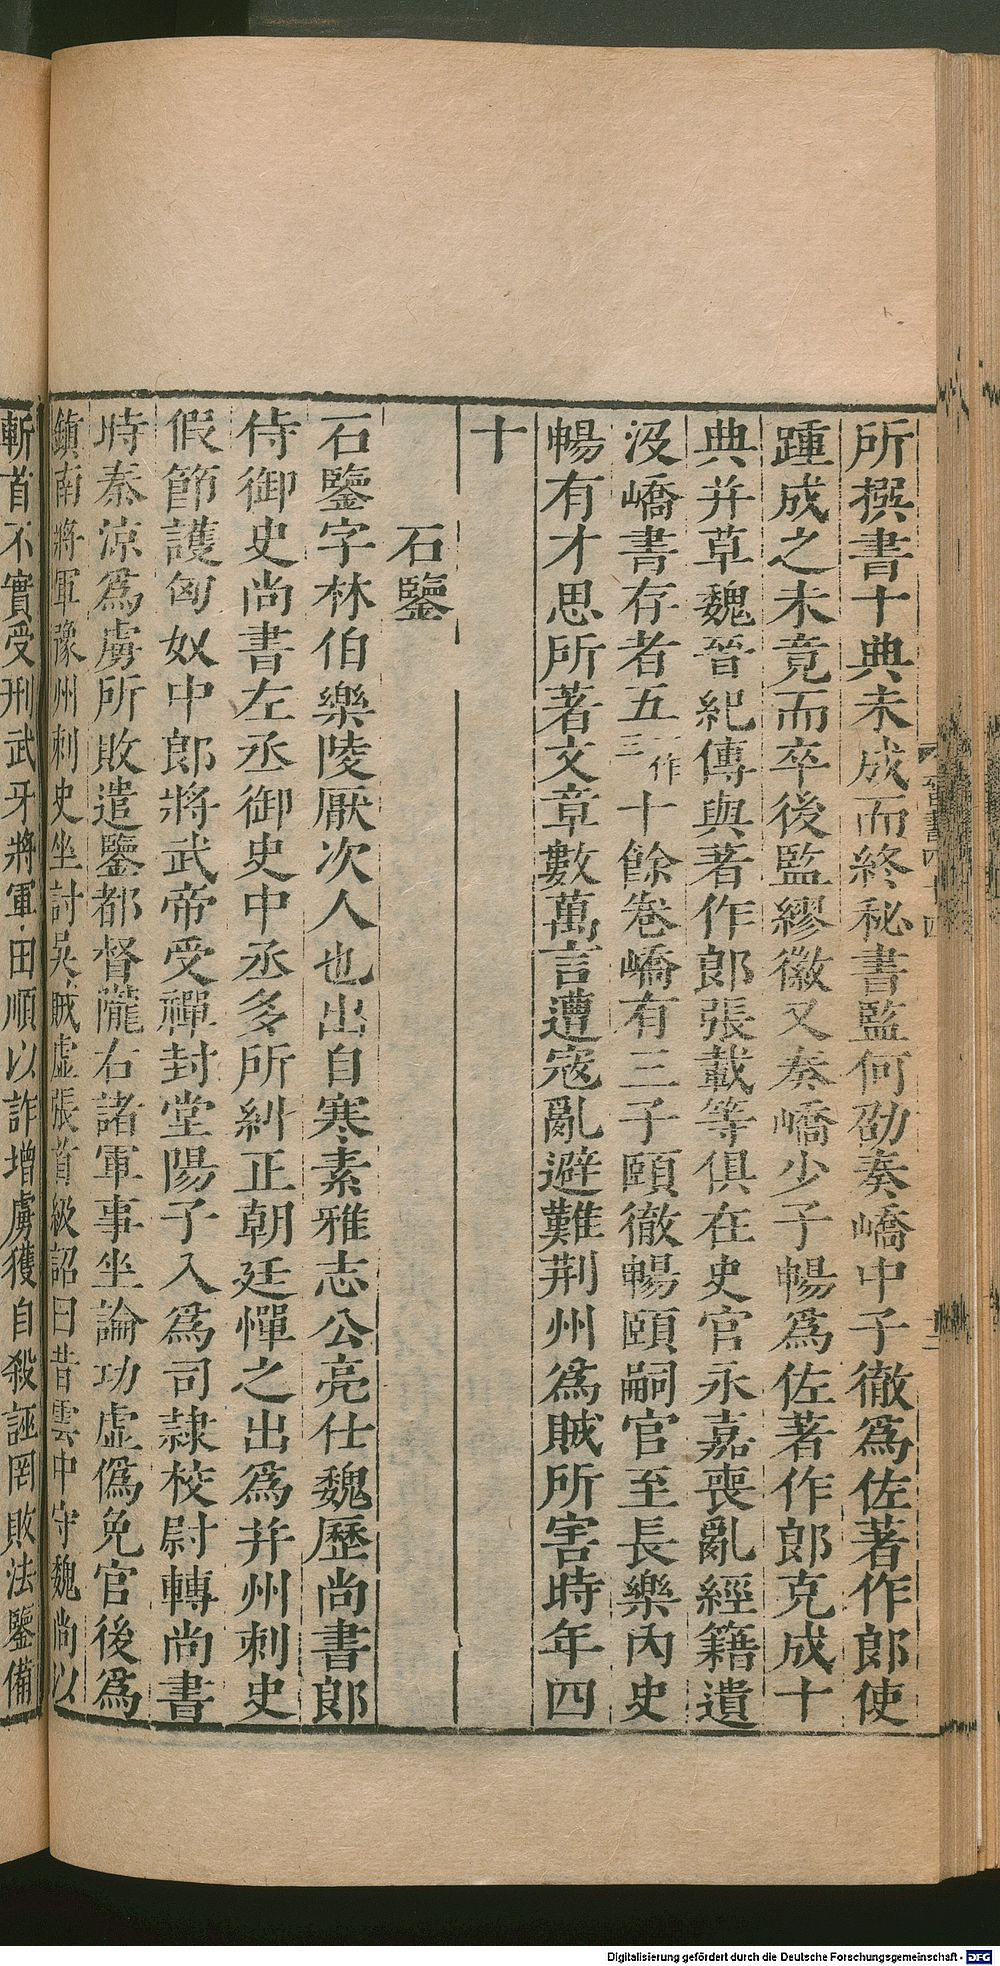 所撰書十典未成而終秘書監何劭奏嶠中子徹爲佐著作郎使
踵成之未竟而卒後監繆徽又奏嶠少子暢爲佐著作郎克成十
典并草魏晉紀傳與著作郎張載等俱在史官永嘉喪亂經籍遺
沒嶠書存者五一作三十餘卷嶠有三子頤徹暢頤嗣官至長樂內史
暢有才思所著文章數萬言遭寇亂避難荆州爲賊所害時年四
十
石鑒
石鑒字林伯樂陵厭次人也出自寒素雅志公亮仕魏歷尚書郎
侍御史尚書左丞御史中丞多所糾正朝廷憚之出爲并州刺史
假節護匈奴中郎將武帝受禪封堂陽子入爲司隷校尉轉尚書
時秦涼爲虜所敗遣鑒都督隴右諸軍事坐論功虛僞免官後爲
鎮南將軍豫州刺史坐討吳賊虛張首級詔曰昔雲中守魏尚以
斬首不實受刑武牙將軍田順以詐增虜獲自殺誣罔敗法鑒備
晉書四十四
Digitalisierung gefördert durch die Deutsche Forschungsgemeinschaft - DFG